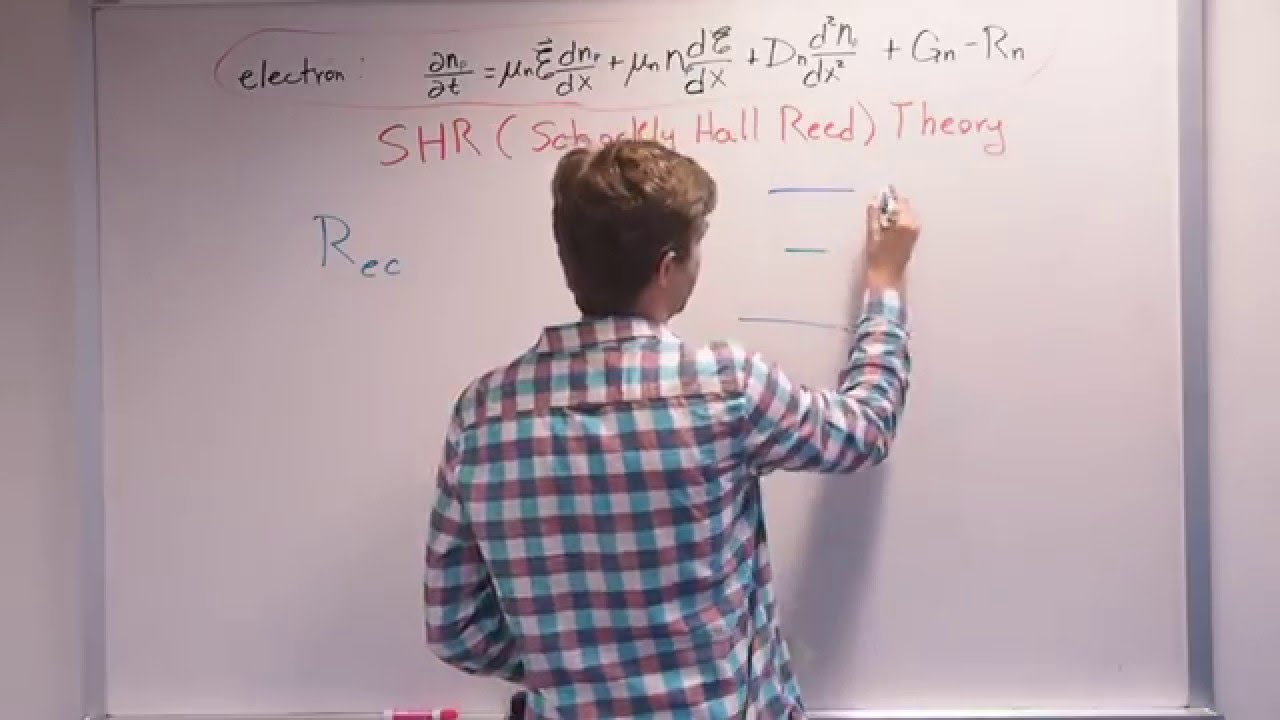 electron: ∂nₚ/∂t = μₙ ℰ⃗ dnₚ/dx + μₙ n dℰ/dx + Dₙ d²nₚ/dx² + Gₙ - Rₙ
SHR (Schockly Hall Reed) Theory
Rec